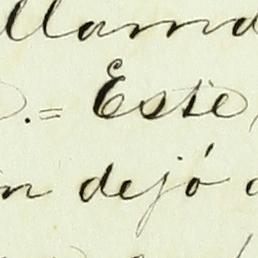 llamd
.= Este,
n dejó